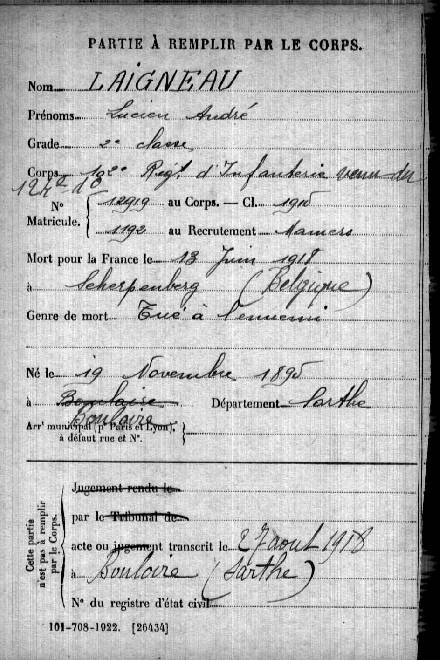 PARTIE À REMPLIR PAR LE CORPS.
Nom LAIGNEAU
Prénoms Lucien André
Grade 2e classe
Corps 102e Régt. d'Infanterie venu du
124e
N° Matricule. 12919 au Corps. — Cl. 1915
1192 au Recrutement Mamers
Mort pour la France le 13 Juin 1918
à Scherpenberg (Belgique)
Genre de mort Tué à l'ennemi
Né le 19 Novembre 1895
à Boulaire Département Sarthe
Bouloire
Arrt municipal (pr Paris et Lyon), à défaut rue et N°.
Cette partie n'est pas à remplir par le Corps.
Jugement rendu le
par le Tribunal de
acte ou jugement transcrit le 27 aout 1918
à Bouloire (Sarthe)
N° du registre d'état civil
101-708-1922. [26434]